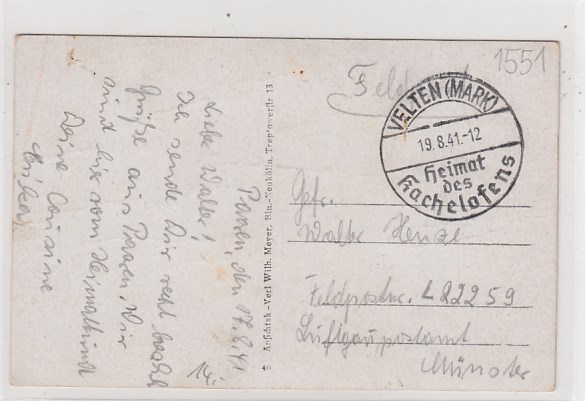 1551
Feldpost
VELTEN (MARK)
19.8.41.-12
Heimat
des
Kachelofens
Gefr.
Walter Hensel
Feldpostnr. L 22259
Luftgaupostamt
Münster
Ansichtsk.-Verl Wilh. Meyer, Bln.-Neukölln, Treptowerstr 13
Paaren, den 17.8.41
Liebe Walter!
Ich sende Dir recht
Grüße aus Paaren. Wir
sind hier vom Heimatbund
Deine Cousine